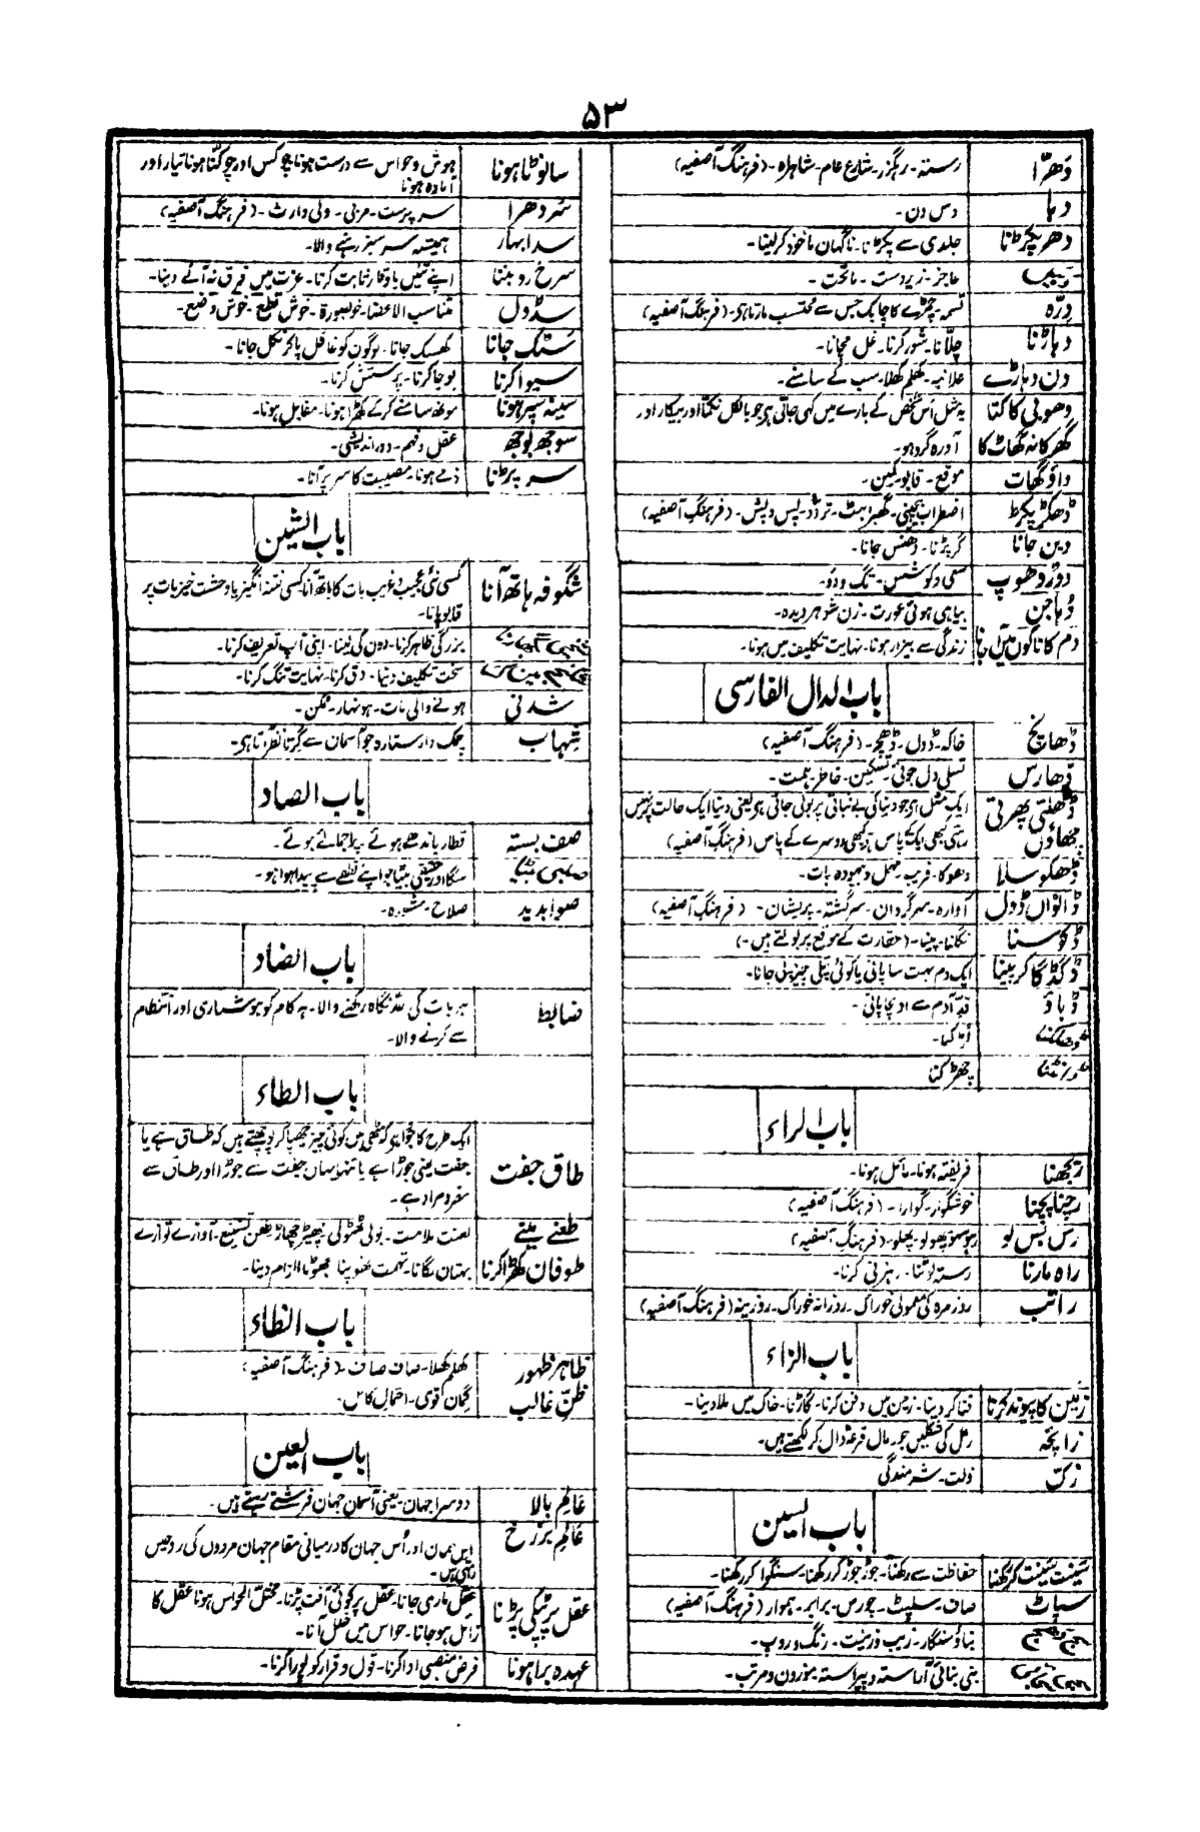 ۵۳
دَھرّا رستہ۔ رہگزر۔ شارع عام۔ شاہراہ۔ (فرہنگ آصفیہ)
دہا دس دن۔
دھر پکڑنا جلدی سے پکڑنا۔ ناگہان ماخوذ کرلینا۔
عاجز۔ زیردست۔ ماتحت۔
دِرّہ تسمہ۔ چمڑے کا چابک جس سے محتسب مارتا ہی۔ (فرہنگ آصفیہ)
دہاڑنا چلّانا۔ شور کرنا۔ غل مچانا۔
دن دہاڑے علانیہ۔ کھلم کھلا۔ سب کے سامنے۔
دھوبی کا کتا یہ مثل اُس شخص کے بارے میں کہی جاتی ہی جو بالکل نکمّا اور بیکار اور
گھر کا نہ گھاٹ کا آورہ گرد ہو۔
داؤ گھات موقع۔ قابو۔ کمین۔
دُھکڑ پکڑ اضطراب۔ بیچینی۔ گھبراہٹ۔ تردّد۔ پس و پیش۔ (فرہنگ آصفیہ)
دہن جانا گر پڑنا۔ دھنس جانا۔
دوڑ دھوپ سعی و کوشش۔ تگ و دَو۔
دُہاجن بیاہی ہوئی عورت۔ زن شوہر دیدہ۔
دم کا ناکوں میں آنا زندگی سے بیزار ہونا۔ نہایت تکلیف میں ہونا۔
باب الدال الفارسی
ڈھانچ خاکہ۔ ڈول۔ ڈھچر۔ (فرہنگ آصفیہ)
ڈھارس تسلی۔ دل جوئی۔ تسکین۔ خاطر۔ ہمت۔
ڈھلتی پھرتی ایک مثل ہی جو دنیا کی بے ثباتی پر بولی جاتی ہی یعنی دنیا ایک حالت پر نہیں
چھاؤں رہتی کبھی ایک پاس ہی کبھی دوسرے کے پاس (فرہنگ آصفیہ)
ڈھکوسلا دھوکا۔ فریب۔ مہمل و بیہودہ بات۔
ڈانواں ڈول آوارہ۔ سرگردان۔ سرگشتہ۔ پریشان۔ (فرہنگ آصفیہ)
ڈکوسنا نگلنا۔ پینا۔ (حقارت کے موقع پر بولتے ہیں۔)
ڈگڈگا کر پینا ایک دم بہت سا پانی یا کوئی پتلی چیز پی جانا۔
ڈباؤ قد آدم سے اونچا پانی۔
چھڑکنا
باب الراء
ریجھنا فریفتہ ہونا۔ مائل ہونا۔
رچنا پچنا خوشگوار۔ گوارا۔ (فرہنگ آصفیہ)
رس بس لو رہو سہو پھولو۔ پھلو۔ (فرہنگ آصفیہ)
راہ مارنا رستہ لوٹنا۔ رہزنی کرنا۔
راتب روزمرہ کی معمولی خوراک۔ روزانہ خوراک۔ روزینہ (فرہنگ آصفیہ)
باب الزاء
زمین کا پیوند کرنا فنا کردینا۔ زمین میں دفن کرنا۔ گاڑنا۔ خاک میں ملا دینا۔
زائچہ رمل کی شکلیں جو رمال قرعہ ڈال کر لکھتے ہیں۔
زک ذلت۔ شرمندگی
باب السین
سَینت سَینت کر رکھنا حفاظت سے رکھنا۔ جوڑ جوڑ کر رکھنا۔ سنگوا کر رکھنا۔
سپاٹ صاف۔ سلپٹ۔ چورس۔ برابر۔ ہموار (فرہنگ آصفیہ)
سج دھج بناؤ سنگار۔ زیب و زینت۔ رنگ و روپ۔
بنی بنائی آراستہ و پیراستہ۔ موزون و مرتب۔
سانوٹا ہونا ہوش و حواس سے درست ہونا۔ چوکس اور چوکنّا ہونا تیار اور
آمادہ ہونا
سُر دھرا سرپرست۔ مربی۔ ولی وارث۔ (فرہنگ آصفیہ)
سدا بہار ہمیشہ سرسبز رہنے والا۔
سرخ رو بننا اپنے تئیں باوقار ثابت کرنا۔ عزت میں فرق نہ آنے دینا۔
سڈول متناسب الاعضا۔ خوبصورت۔ خوش قطع۔ خوش وضع۔
سَٹک جانا کھسک جانا۔ لوگوں کو غافل پاکر نکل جانا۔
سیوا کرنا پوجا کرنا۔ پرستش کرنا۔
سینہ سپر ہونا مونھ سامنے کرکے کھڑا ہونا۔ مقابل ہونا۔
سوجھ بوجھ عقل و فہم۔ دور اندیشی۔
سر پڑنا ذمے ہونا۔ مصیبت کا سر پر آنا۔
باب الشین
شگوفہ ہاتھ آنا کسی نئی عجیب و غریب بات کا ہاتھ آنا کسی فتنہ انگیز یا وحشت خیز بات پر
قابو پانا۔
بزرگی ظاہر کرنا۔ دون کی لینا۔ اپنی آپ تعریف کرنا۔
سخت تکلیف دینا۔ دق کرنا۔ نہایت تنگ کرنا۔
شدنی ہونے والی بات۔ ہونہار۔ ممکن۔
شِہاب چمک دار ستارہ جو آسمان سے گرتا نظر آتا ہی۔
باب الصاد
صف بستہ قطار باندھے ہوئے۔ پرا جمائے ہوئے۔
صلبی بیٹا سگا اور حقیقی بیٹا جو اپنے نطفے سے پیدا ہوا ہو۔
صوابدید صلاح۔ مشورہ۔
باب الضاد
ضابط ہر بات کی مدنگاہ رکھنے والا۔ ہر کام کو ہوشیاری اور انتظام
سے کرنے والا۔
باب الطاء
ایک طرح کا جوا ہی کہ مٹھی میں کوئی چیز چھپا کر پوچھتے ہیں کہ طاق ہے یا
طاق جفت جفت یعنی جوڑا ہے یا تنہا یہاں جفت سے جوڑا اور طاق سے
منفرد مراد ہے۔
طعنے مینے لعنت ملامت۔ بولی ٹھٹولی۔ چھیڑ چھاڑ۔ طعن تشنیع۔ آوازے توازے
طوفان کھڑا کرنا بہتان لگانا۔ تہمت تھوپنا جھوٹا الزام دینا۔
باب الظاء
ظاہر ظہور کھلم کھلا۔ صاف صاف۔ (فرہنگ آصفیہ)
ظنِّ غالب گمان قوی۔ احتمال کامل۔
باب العین
عالم بالا دوسرا جہان۔ یعنی آسمان جہان فرشتے رہتے ہیں۔
عالم برزخ اِس جہان اور اُس جہان کا درمیانی مقام جہان مردوں کی روحیں
رہتی ہیں۔
عقل پر پٹکی پڑنا عقل ماری جانا۔ عقل پر کوئی آفت پڑنا۔ مختل الحواس ہونا عقل کا
زائل ہو جانا۔ حواس میں خلل آنا۔
عہدہ برا ہونا فرض منصبی ادا کرنا۔ قول و قرار کو پورا کرنا۔